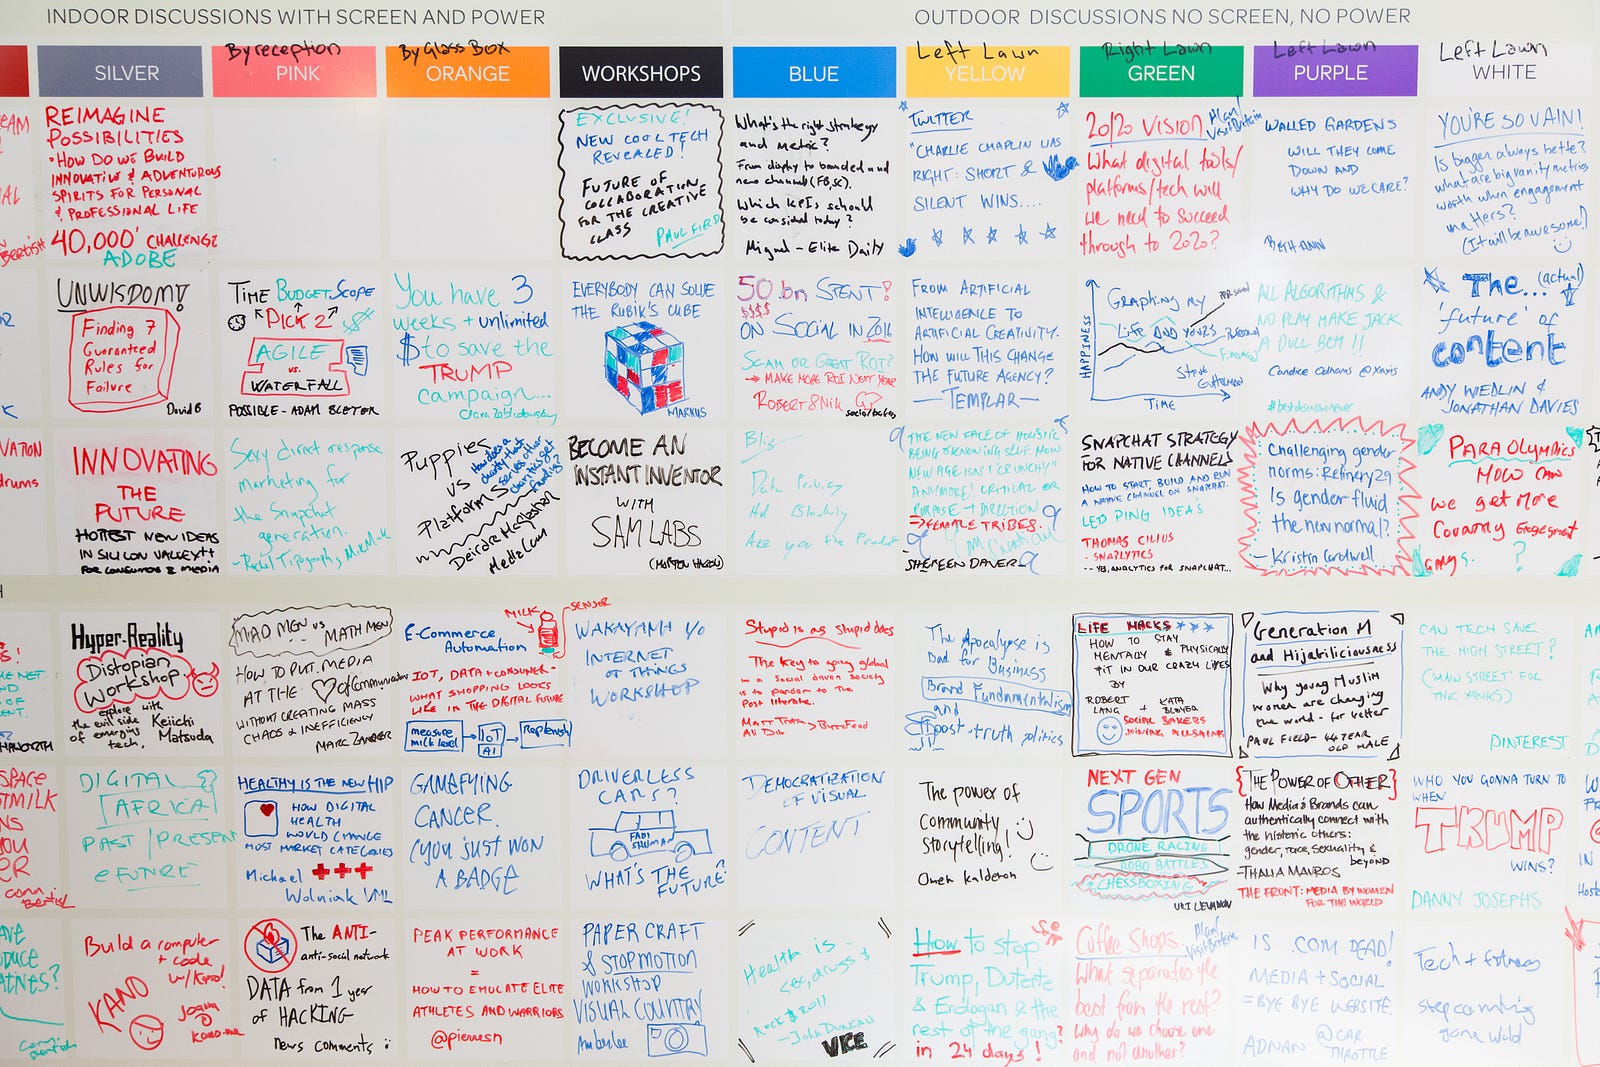 INDOOR DISCUSSIONS WITH SCREEN AND POWER
OUTDOOR DISCUSSIONS NO SCREEN, NO POWER
SILVER
By reception
PINK
By Glass Box
ORANGE
WORKSHOPS
BLUE
Left Lawn
YELLOW
Right Lawn
GREEN
Left Lawn
PURPLE
Left Lawn
WHITE
REIMAGINE
POSSIBILITIES
• HOW DO WE BUILD
INNOVATIVE & ADVENTUROUS
SPIRITS FOR PERSONAL
& PROFESSIONAL LIFE
40,000' CHALLENGE
ADOBE
EXCLUSIVE!
NEW COOL TECH
REVEALED!
FUTURE OF
COLLABORATION
FOR THE CREATIVE
CLASS
PAUL FIELD
What's the right strategy
and metric?
From display to branded and
new channel (FB, SC).
Which KPIs should
be considered today?
Miguel - Elite Daily
TWITTER
"CHARLIE CHAPLIN WAS
RIGHT: SHORT &
SILENT WINS....
20/20 VISION
Alan/
Visit Britain
What digital tools/
platforms/tech will
we need to succeed
through to 2020?
WALLED GARDENS
WILL THEY COME
DOWN AND
WHY DO WE CARE?
BETH-ANN
YOU'RE SO VAIN!
Is bigger always better?
what are big vanity metrics
worth when engagement
matters?
(It will be awesome!)
UNWISDOM!
Finding 7
Guaranteed
Rules for
Failure
David B
TIME BUDGET SCOPE
PICK 2
AGILE
vs.
WATERFALL
POSSIBLE - ADAM
You have 3
weeks + unlimited
$ to save the
TRUMP
campaign...
Clara
EVERYBODY CAN SOLVE
THE RUBIK'S CUBE
MARKUS
50 bn SPENT!
$$$$
ON SOCIAL IN 2016
SCAM OR GREAT ROI?
→ MAKE MORE ROI NEXT YEAR
ROBERT & Nik
socialbakers
FROM ARTIFICIAL
INTELLIGENCE TO
ARTIFICIAL CREATIVITY.
HOW WILL THIS CHANGE
THE FUTURE AGENCY?
— TEMPLAR —
Graphing my
Life AND yours
HAPPINESS
TIME
Steve
ALL ALGORITHMS &
NO PLAY MAKE JACK
A DULL BOY !!
Candice Odhams @Xaxis
#bestdiscussionever
The... (actual)
'future' of
content
ANDY WIEDLIN &
JONATHAN DAVIES
INNOVATING
THE
FUTURE
HOTTEST NEW IDEAS
IN SILICON VALLEY++
FOR CONSUMER & MEDIA
Sexy direct response
marketing for
the Snapchat
generation.
Puppies
vs
Platforms
How does a
charity that
serves other
charities get
funding?
Deirdre McGlashan
MediaCom
BECOME AN
INSTANT INVENTOR
WITH
SAM LABS
Data Privacy
Ad Blocking
THE NEW FACE OF HOLISTIC
BEING & KNOWING SELF. HOW
NEW AGE ISN'T "CRUNCHY"
ANYMORE! CRITICAL FOR
PURPOSE + DIRECTION
→ FEMALE TRIBES.
SHEREEN DAVER
SNAPCHAT STRATEGY
FOR NATIVE CHANNELS
HOW TO START, BUILD AND RUN
A NATIVE CHANNEL ON SNAPCHAT.
THOMAS CILIUS
- SNAPLYTICS
Challenging gender
norms: Refinery29
Is gender fluid
the new normal?
- Kristin Cardwell
PARAOLYMPICS
HOW CAN
we get more
Country Engagement
?
Hyper-Reality
Distopian
Workshop
explore with
the evil side
of emerging
tech.
Keiichi
Matsuda
MAD MEN vs
MATH MEN
HOW TO PUT MEDIA
AT THE ♥ of Communication
WITHOUT CREATING MASS
CHAOS & INEFFICIENCY
MARC ZANDER
MILK
SENSOR
E-Commerce
Automation
IOT, DATA + CONSUMER-
WHAT SHOPPING LOOKS
LIKE IN THE DIGITAL FUTURE
measure
milk level
IoT
AI
Replenish
WAKAYAMA Y/O
INTERNET
OF THINGS
WORKSHOP
Stupid is as Stupid Does
The key to going global
in a Social driven society
is to pander to the
Post literate.
BuzzFeed
The Apocalypse is
Bad for Business
Brand Fundamentalism
and
post-truth politics
LIFE HACKS ***
HOW TO STAY
MENTALLY & PHYSICALLY
FIT IN OUR CRAZY LIVES
BY
ROBERT
LANG
+
SOCIAL BAKERS
Generation M
and Hijabiliciousness
Why young Muslim
women are changing
the world - for better
PAUL FIELD - 44 YEAR
OLD MALE
CAN TECH SAVE
THE HIGH STREET?
('MAIN STREET' FOR
THE YANKS)
PINTEREST
DIGITAL
AFRICA
PAST / PRESENT
& FUTURE
HEALTHY IS THE NEW HIP
HOW DIGITAL
HEALTH
WOULD CHANGE
MOST MARKET CATEGORIES
Michael
Wolniak VML
GAMEFYING
CANCER.
(YOU JUST WON
A BADGE
DRIVERLESS
CARS?
FADI
SHUMAN
WHAT'S THE
FUTURE?
DEMOCRATIZATION
OF VISUAL
CONTENT
The power of
Community
storytelling!
Omer Kalderon
NEXT GEN
SPORTS
DRONE RACING
ROBO BATTLES
CHESSBOXING
URI LEVANON
THE POWER OF OTHER
How Media & Brands can
authentically connect with
the historic others:
gender, race, sexuality &
beyond
- THALIA MAVROS
THE FRONT: MEDIA BY WOMEN
FOR THE WORLD
WHO YOU GONNA TURN TO
WHEN
TRUMP
WINS?
DANNY JOSEPHS
Build a computer
+ code
w/Kano!
KANO
The ANTI-
anti-social network
DATA from 1 year
of HACKING
news comments :
PEAK PERFORMANCE
AT WORK
=
HOW TO EMULATE ELITE
ATHLETES AND WARRIORS
PAPER CRAFT
& STOPMOTION
WORKSHOP
VISUAL COUNTRY
Health is
sex, drugs &
Rock & roll
- John Duncan
VICE
How to stop
Trump, Duterte
& Erdogan & the
rest of the gang?
in 24 days!
Coffee Shops
Alan/
Visit Britain
What separates the
best from the rest?
Why do we choose one
and not another?
IS .COM DEAD!
MEDIA + SOCIAL
= BYE BYE WEBSITE.
ADNAN @CAR
THROTTLE
Tech + fitness
stepcounting
gone wild